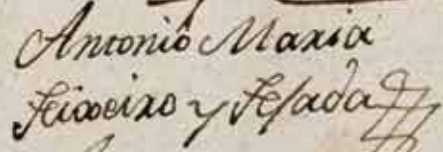 Antonio Maria
Teixeixo y Tesada